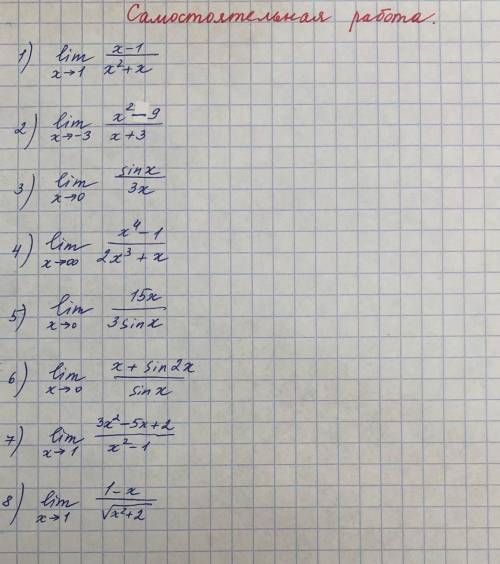 Самостоятельная работа.
1) lim x→1 (x-1)/(x²+x)
2) lim x→-3 (x²-9)/(x+3)
3) lim x→0 sinx/3x
4) lim x→∞ (x⁴-1)/(2x³+x)
5) lim x→0 15x/3sinx
6) lim x→0 (x+sin2x)/sinx
7) lim x→1 (3x²-5x+2)/(x²-1)
8) lim x→1 (1-x)/√(x²+2)